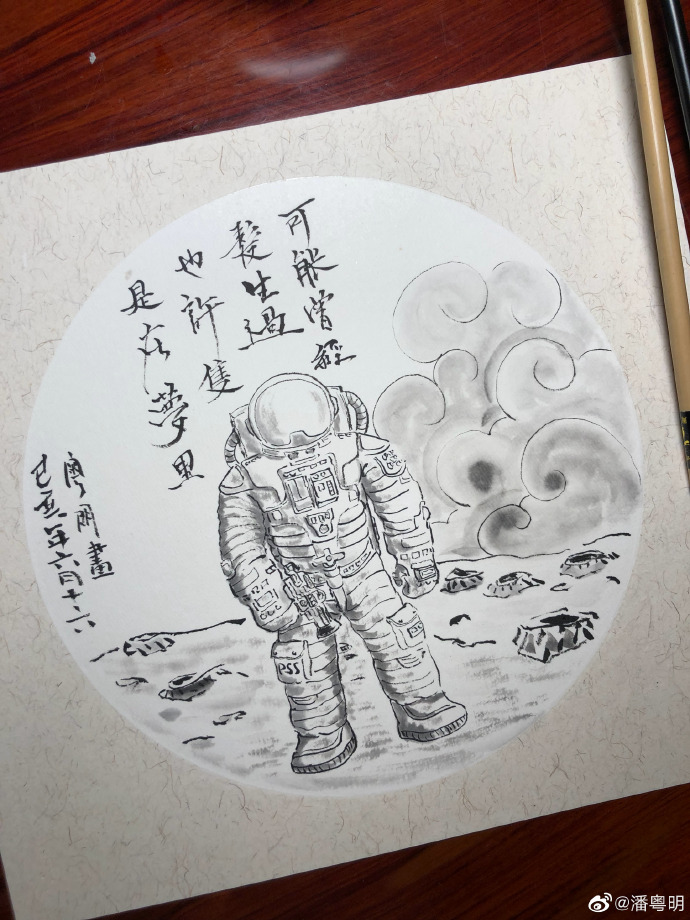 可能曾經
發生過
也許隻
是在夢里
粤明畫
己亥年六月十六
PSS
@潘粤明